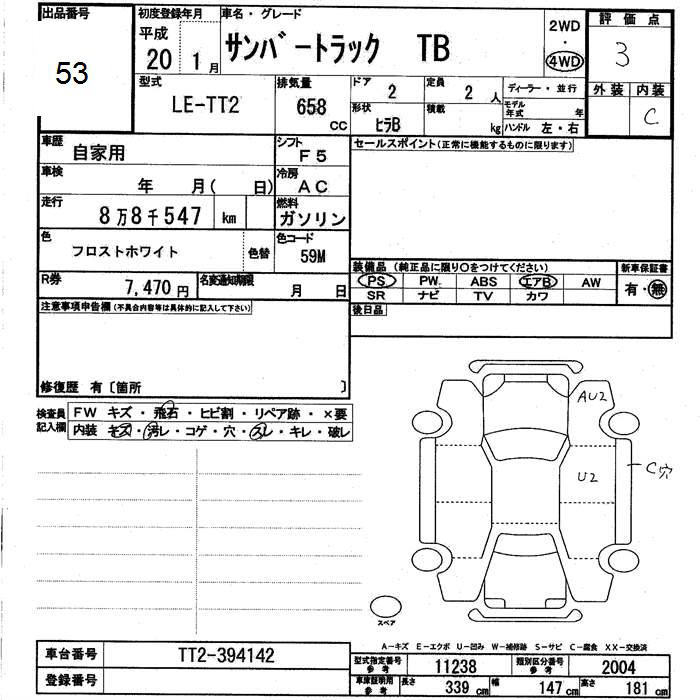 出品番号
53
初度登録年月
平成
20 1月
車名・グレード
サンバートラック TB
2WD
・
4WD
評価点
3
外装 内装
C
型式
LE-TT2
排気量
658 CC
ドア
2
定員
2 人
形状
ヒラB
積載
kg
ディーラー・並行
モデル年式 年
ハンドル 左・右
車歴
自家用
シフト
F5
車検
年 月( 日)
冷房
AC
走行
8万8千547 km
燃料
ガソリン
色
フロストホワイト
色替
色コード
59M
R券
7,470円
名変通知期限
月 日
セールスポイント(正常に機能するものに限ります)
装備品 (純正品に限り○をつけてください)
新車保証書
PS PW ABS エアB AW
SR ナビ TV カワ
有・無
後日品
注意事項申告欄(不具合内容等は具体的に記入して下さい)
修復歴 有〔箇所 〕
検査員記入欄
FW キズ・飛石・ヒビ割・リペア跡・×要
内装 キズ・汚レ・コゲ・穴・スレ・キレ・破レ
AU2
U2
C穴
スペア
A-キズ E-エクボ U-凹み W-補修跡 S-サビ C-腐食 XX-交換済
車台番号
TT2-394142
登録番号
型式指定番号
参考
11238
類別区分番号
参考
2004
車庫証明用
参考
長さ
339 cm
幅
147 cm
高さ
181 cm